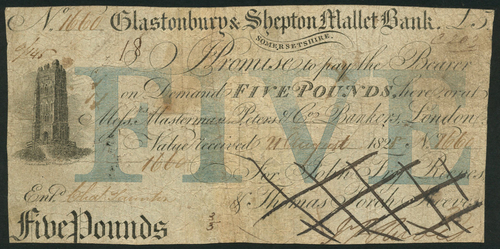 No. 1660 Glastonbury & Shepton Mallet Bank. £
SOMERSETSHIRE.
18
I Promise to pay the Bearer
on Demand FIVE POUNDS, here, or at
Messrs. Masterman Peters & Co. Bankers, London
Value received 21 August 1828 No. 1660
1660
For John Fry Reeves
Entd. & Thomas Porch Reeves
Five Pounds
FIVE